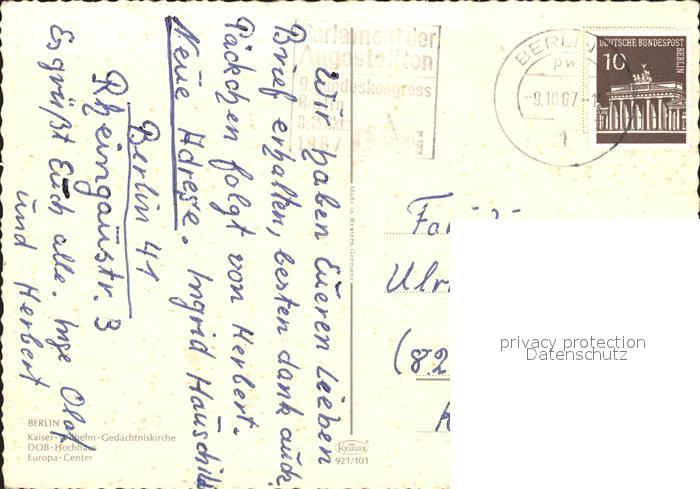 Wir haben Eueren Lieben
Brief erhalten, besten dank auch
Päckchen folgt von Herbert.
Neue Adreße. Ingrid Hauschild
Berlin 41
Rheingaustr. 3
Es grüßt Euch alle. Inge Olaf
und Herbert
BERLIN
Kaiser-Wilhelm-Gedächtniskirche
DOB-Hochhaus
Europa-Center
Made in Western Germany
KRÜGER
921/101
Parlament der
Angestellten
9. Bundeskongress
Berlin
1967
BERLIN
-9.10.67-
1
DEUTSCHE BUNDESPOST
BERLIN
10
Ulr
(82
privacy protection
Datenschutz